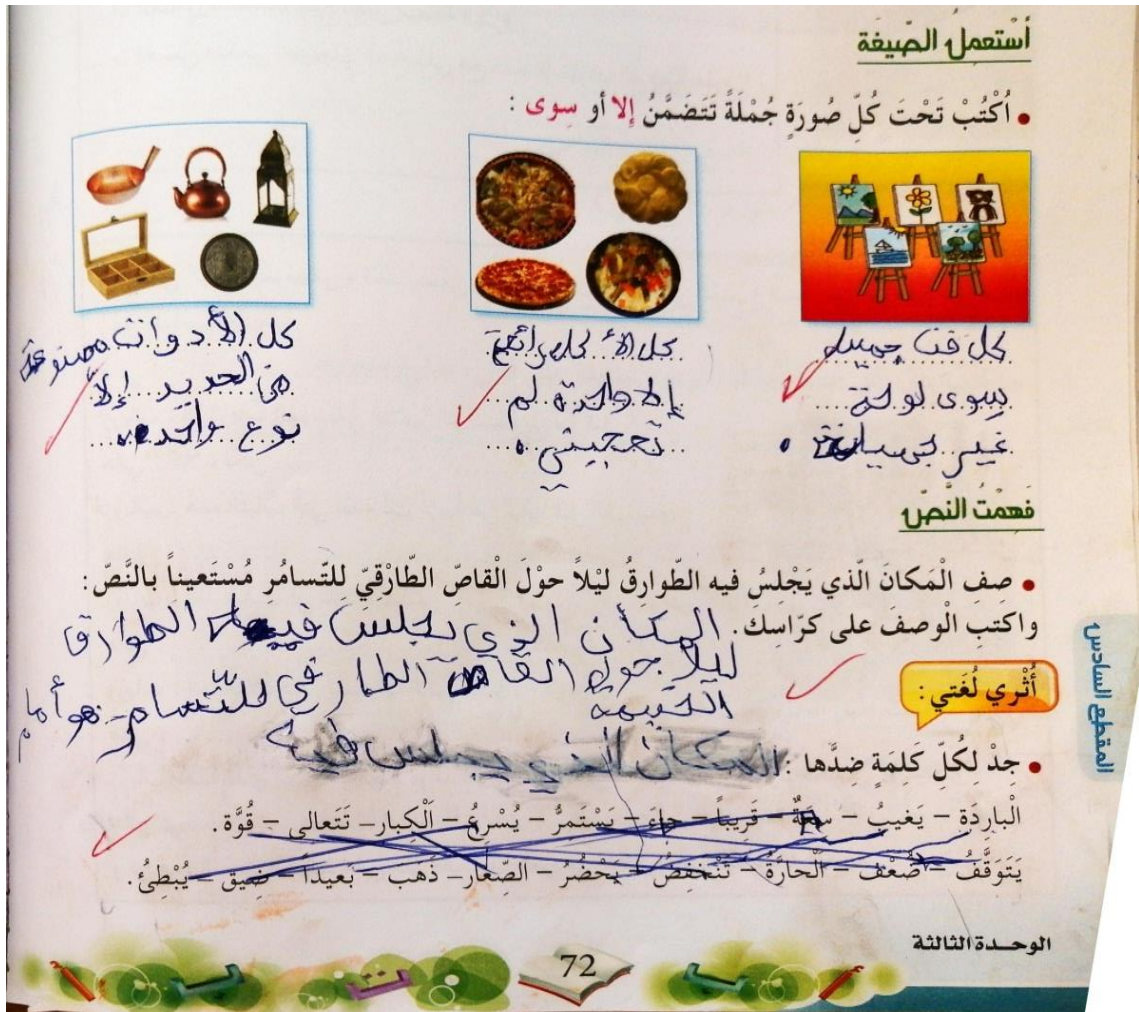 أَسْتَعْمِلُ الصِّيغَةَ
• اُكْتُبْ تَحْتَ كُلِّ صُورَةٍ جُمْلَةً تَتَضَمَّنُ إِلا أو سِوى :
كل جميلة
سوى لوحة
غير
كل الأ
إلا واحدة لم
تعجبني.
كل الأدوات مصنوعة
من الحديد إلا
نوع واحد.
فَهِمْتُ النَّصَّ
• صِفِ الْمَكانَ الّذي يَجْلِسُ فيه الطّوارِقُ ليْلاً حوْلَ الْقاصِّ الطّارْقِيِّ لِلتّسامُرِ مُسْتَعيناً بالنَّصّ :
واكتَبِ الْوصفَ على كرّاسِك.
المكان الذي يجلس فيه الطوارق
ليلا حول القاص الطارقي للتسامر هو أمام
الخيمة
أُثْري لُغَتي :
• جِدْ لِكُلِّ كَلِمَةٍ ضِدَّها :
المكان الذي يجلس فيه
الْبارِدَة – يَغيبُ – سعَةٌ – قَريباً – جاءَ – يَسْتَمرُّ – يُسْرِعُ – اَلْكِبار – تَتَعالى – قُوَّة.
يَتَوَقَّفُ – ضُعْف – الْحارَّةُ – تَنْخَفِضُ – يَحْضُرُ – الصِّغار – ذَهَب – بَعيداً – ضيق – يُبْطِئُ.
المقطع السادس
الوحدة الثالثة
72